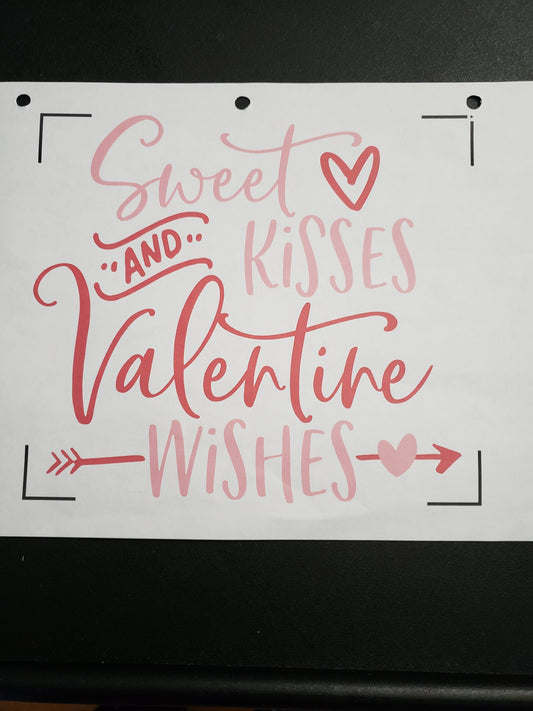 Sweet
AND KiSSES
Valentine
WiSHES